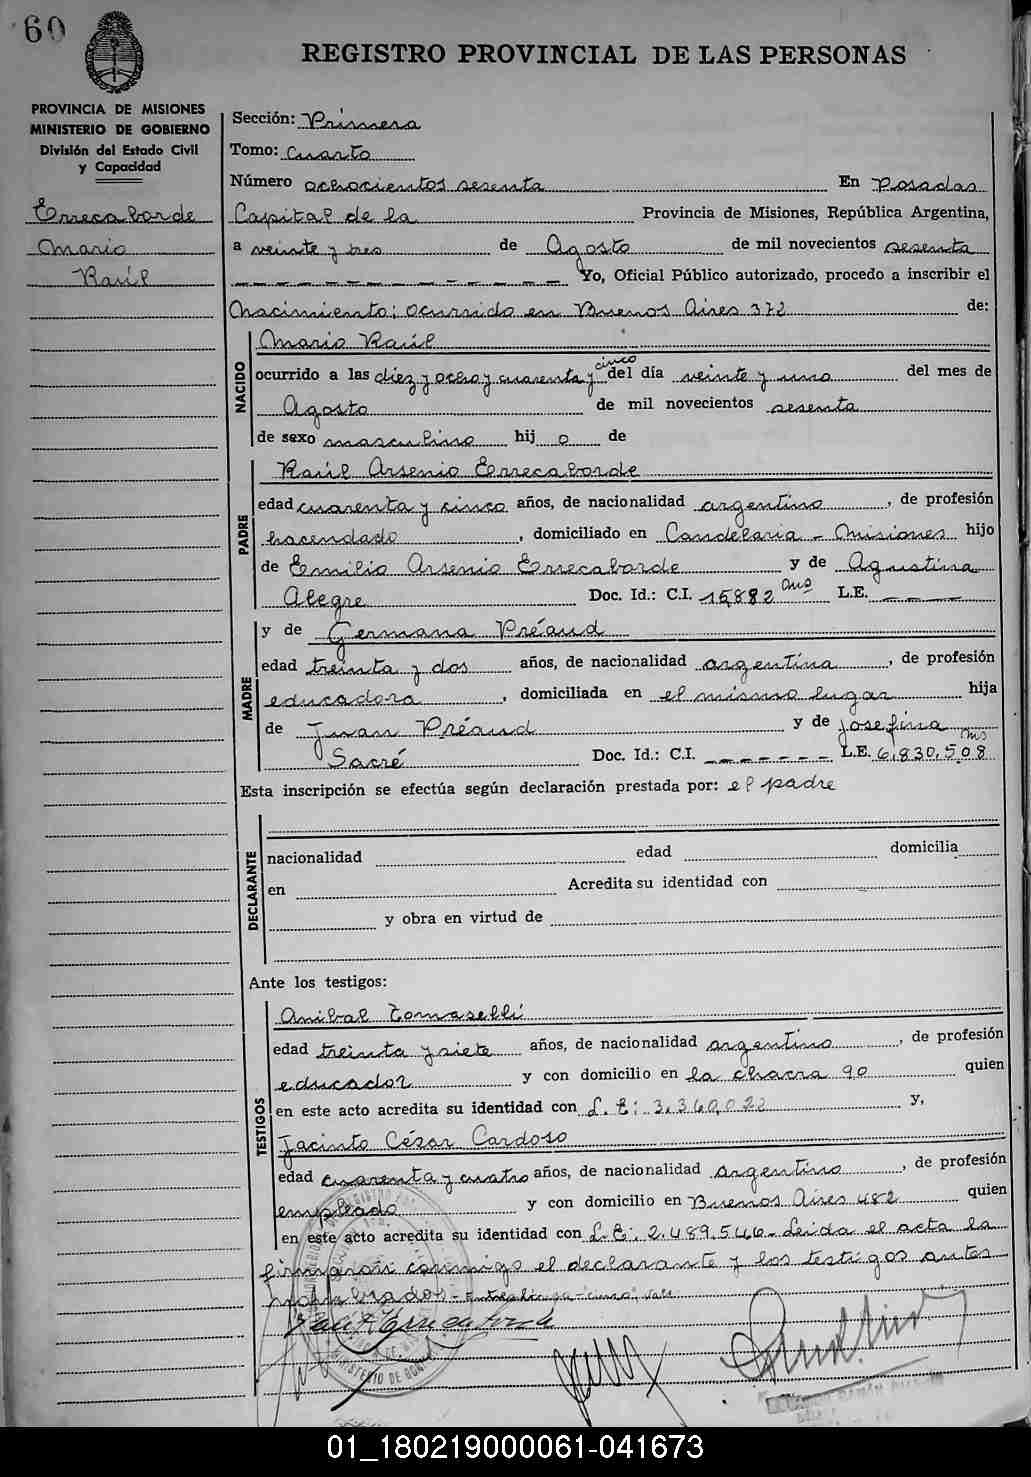 60
REGISTRO PROVINCIAL DE LAS PERSONAS
PROVINCIA DE MISIONES
MINISTERIO DE GOBIERNO
División del Estado Civil
y Capacidad
Errecaborde
Mario
Raúl
Sección: Primera
Tomo: Cuarto
Número ochocientos sesenta En Posadas
Capital de la Provincia de Misiones, República Argentina,
a veinte y tres de Agosto de mil novecientos sesenta
Yo, Oficial Público autorizado, procedo a inscribir el
Nacimiento; ocurrido en Buenos Aires 372 de:
NACIDO
Mario Raúl
cinco
ocurrido a las diez y ocho y cuarenta y del día veinte y uno del mes de
Agosto de mil novecientos sesenta
de sexo masculino hij o de
PADRE
Raúl Arsenio Errecaborde
edad cuarenta y cinco años, de nacionalidad argentino, de profesión
hacendado, domiciliado en Candelaria - Misiones hijo
de Emilio Arsenio Errecaborde y de Agustina
Alegre Doc. Id.: C.I. 15882 Mns L.E. _ _ _ _
MADRE
y de Germana Préaud
edad treinta y dos años, de nacionalidad argentina, de profesión
educadora, domiciliada en el mismo lugar hija
de Juan Préaud y de Josefina
Sacré Doc. Id.: C.I. _ _ _ _ _ _ _ L.E. 6,830,508
Esta inscripción se efectúa según declaración prestada por: el padre
DECLARANTE
nacionalidad edad domicilia
en Acredita su identidad con
y obra en virtud de
Ante los testigos:
TESTIGOS
Anibal Tomaselli
edad treinta y siete años, de nacionalidad argentino, de profesión
educador y con domicilio en la chacra 90 quien
en este acto acredita su identidad con L. E: 3.360,022 y,
Jacinto César Cardoso
edad cuarenta y cuatro años, de nacionalidad argentino, de profesión
empleado y con domicilio en Buenos Aires 482 quien
en este acto acredita su identidad con L.E: 2.489.546. Leida el acta la
firmaron conmigo el declarante y los testigos antes
nombrados - Entrelinea - cinco, vale.
MINISTERIO DE
01_180219000061-041673